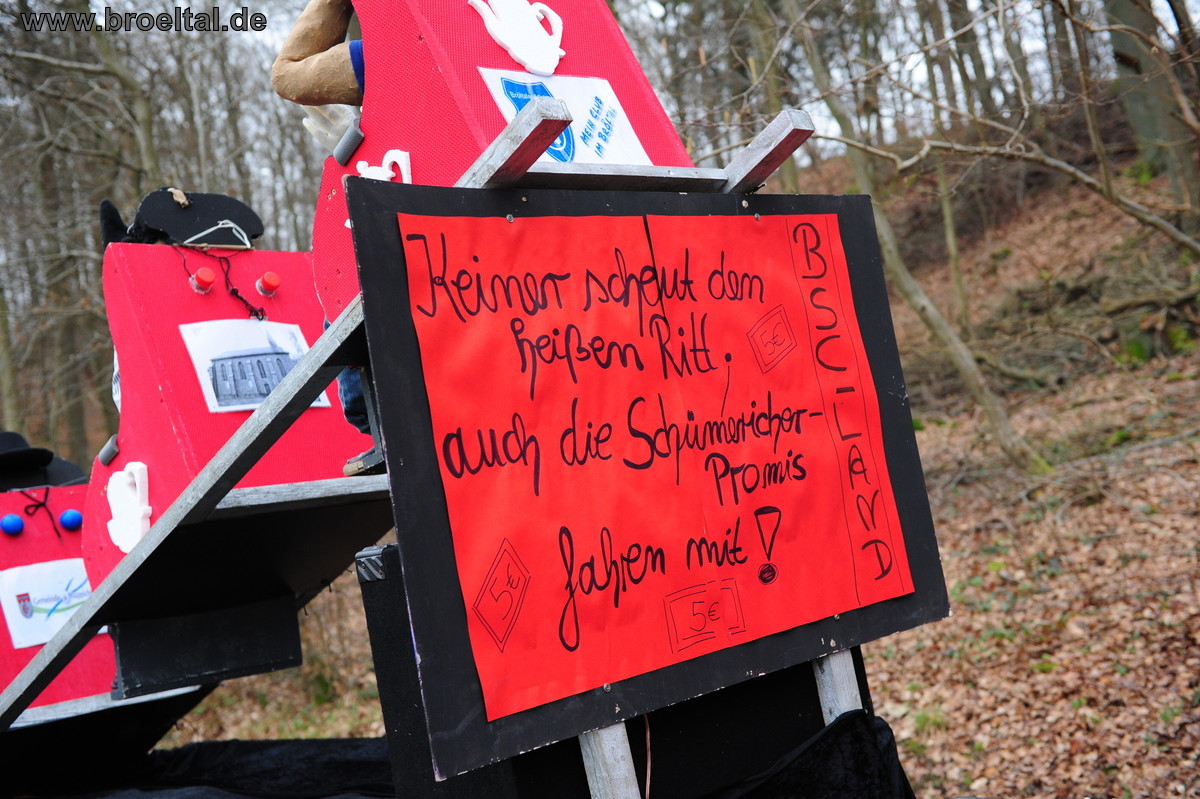 www.broeltal.de
MEIN CLUB
IM BRÖLTAL
Keiner scheut den
heißen Ritt,
auch die Schümericher-
Promis
fahren mit!
5€
5€
5€
BSC-LAND
Gemeinde